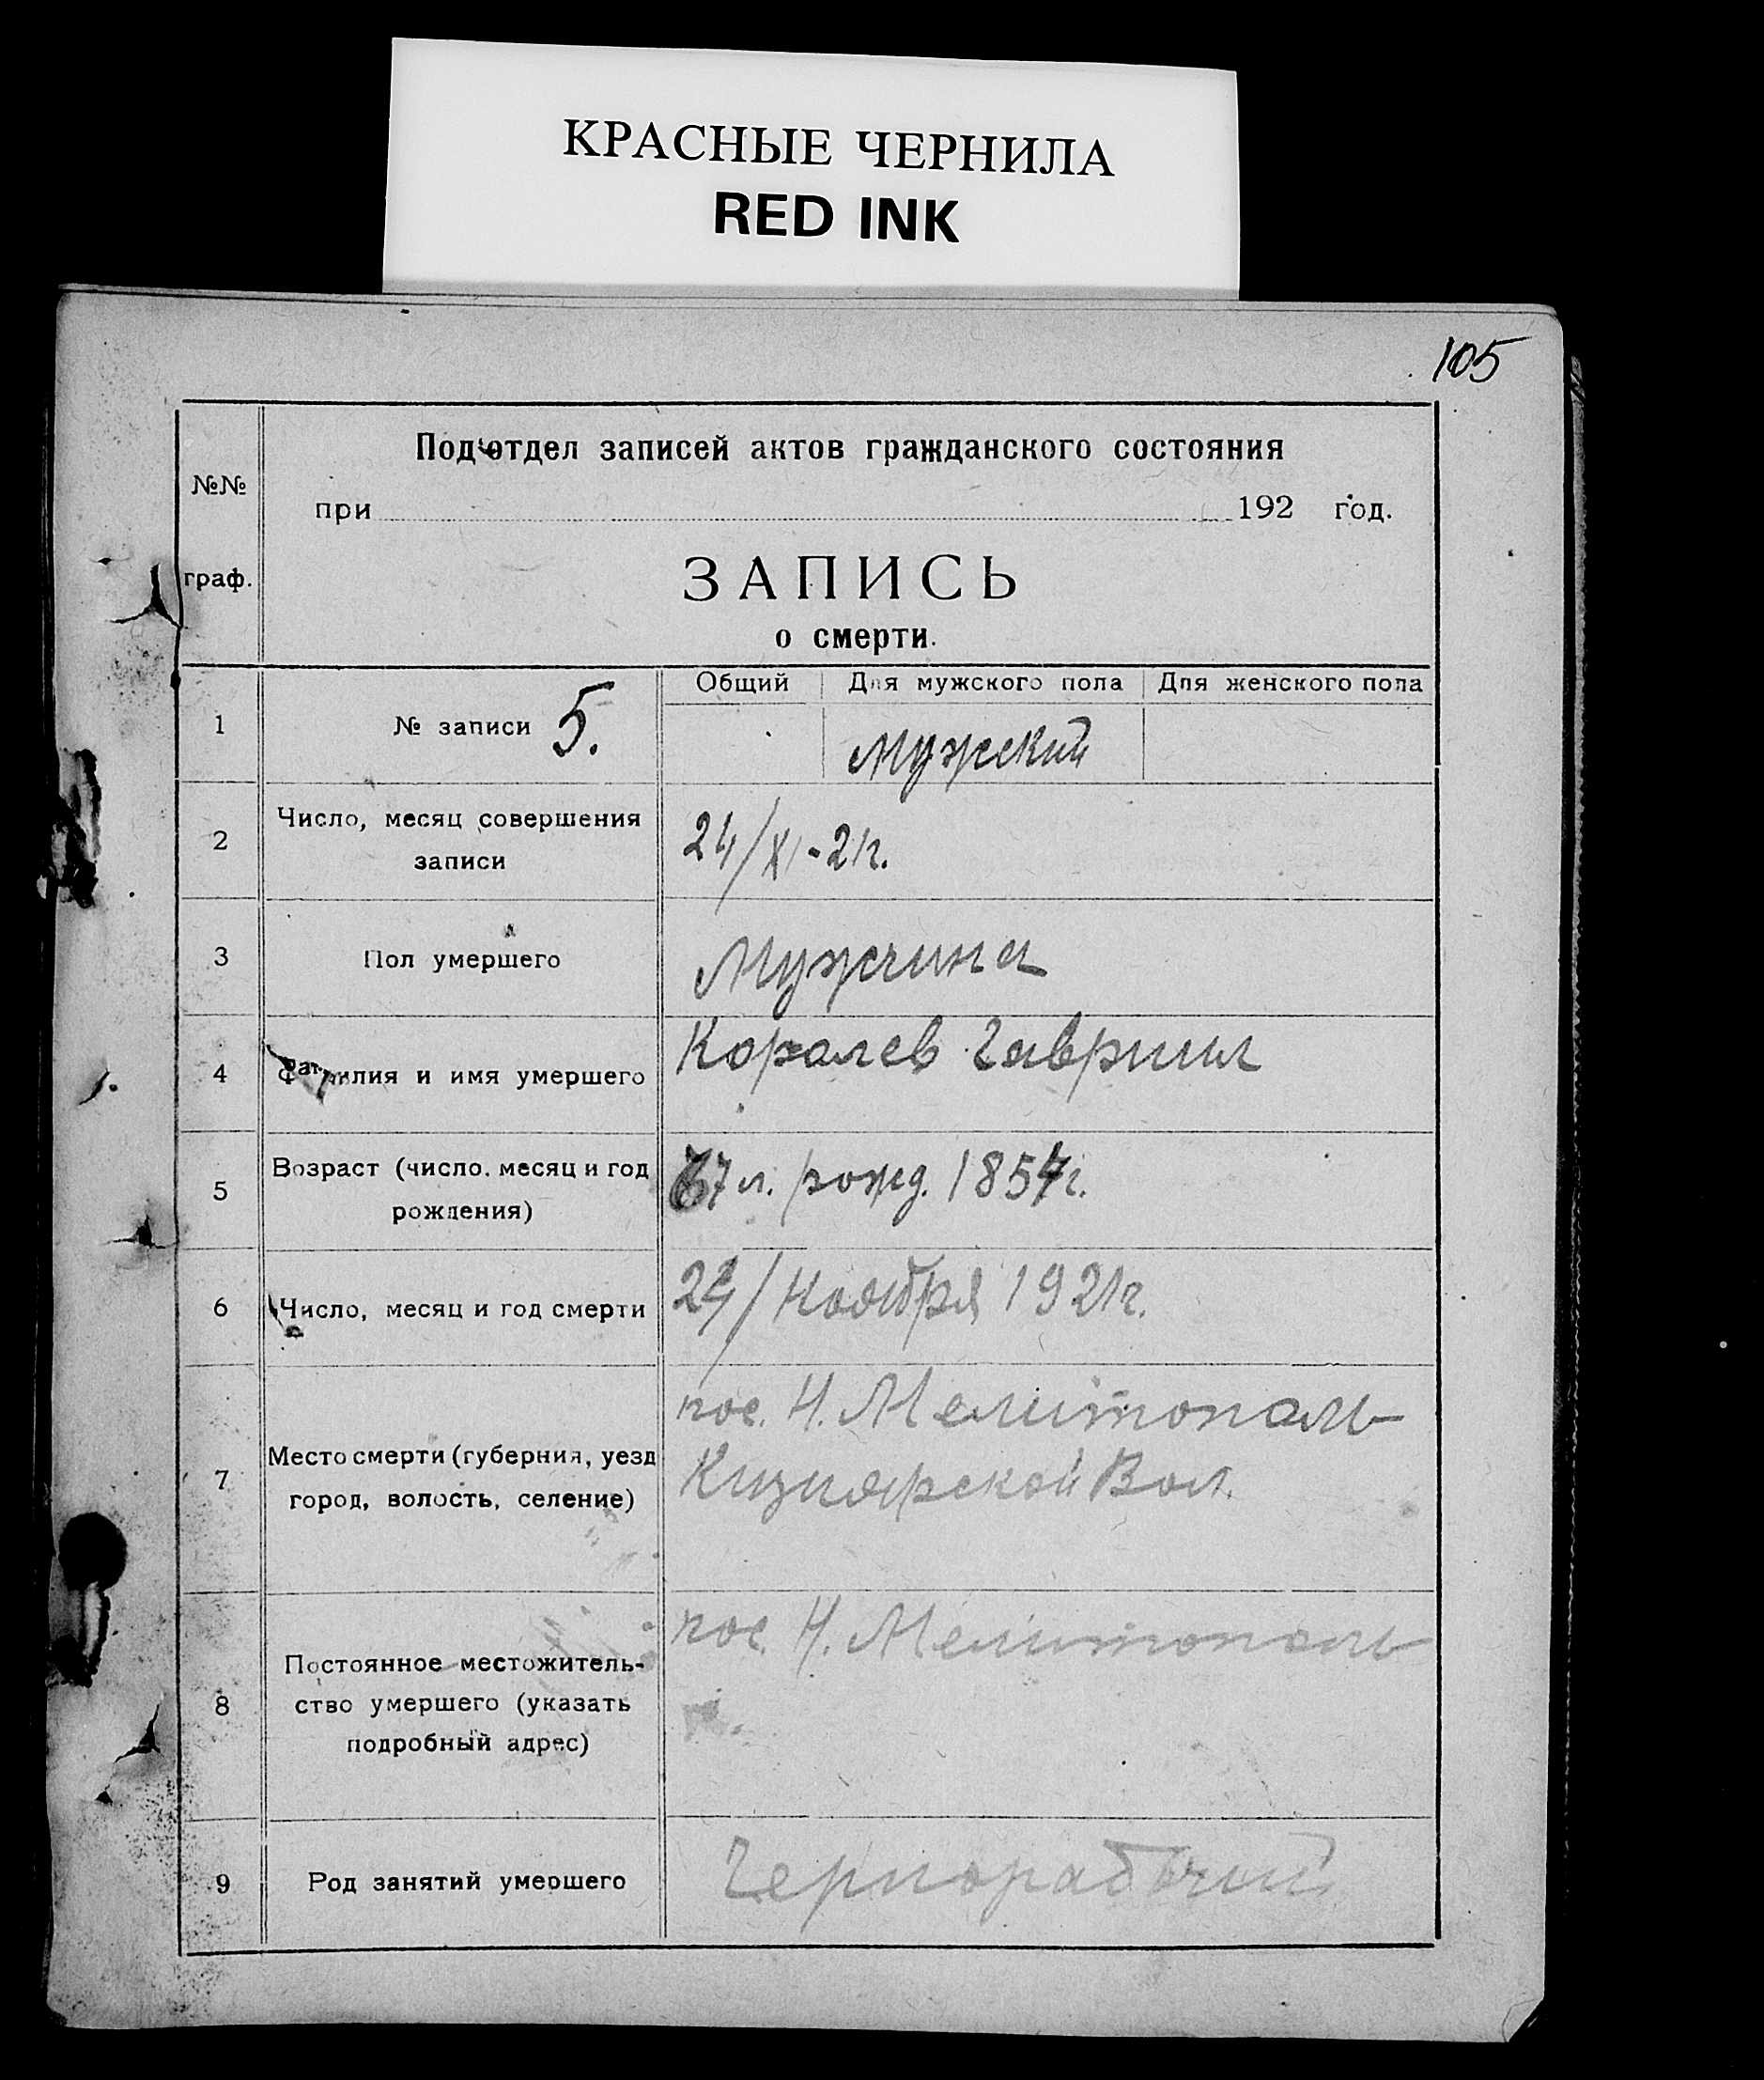 КРАСНЫЕ ЧЕРНИЛА
RED INK
105
№№
граф.
Подотдел записей актов гражданского состояния
при 192 год.
ЗАПИСЬ
о смерти.
Общий Для мужского пола Для женского пола
1 № записи 5. Мужский
2 Число, месяц совершения
записи
24/XI-21г.
3 Пол умершего Мужчина
4 Фамилия и имя умершего Коралев Гавриил
5 Возраст (число, месяц и год
рождения)
67 л. рожд. 1854 г.
6 Число, месяц и год смерти Ноября 1921г.
7 Место смерти (губерния, уезд
город, волость, селение)
пос. Н. Мелитополь
Кизиярской Вол.
8 Постоянное местожитель-
ство умершего (указать
подробный адрес)
пос. Н. Мелитополь
9 Род занятий умершего Чернорабочий